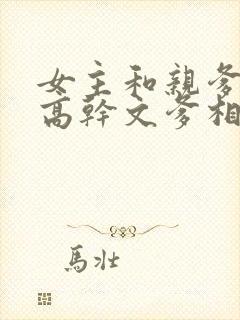 女主和親爹
高幹文爹相
馬壯